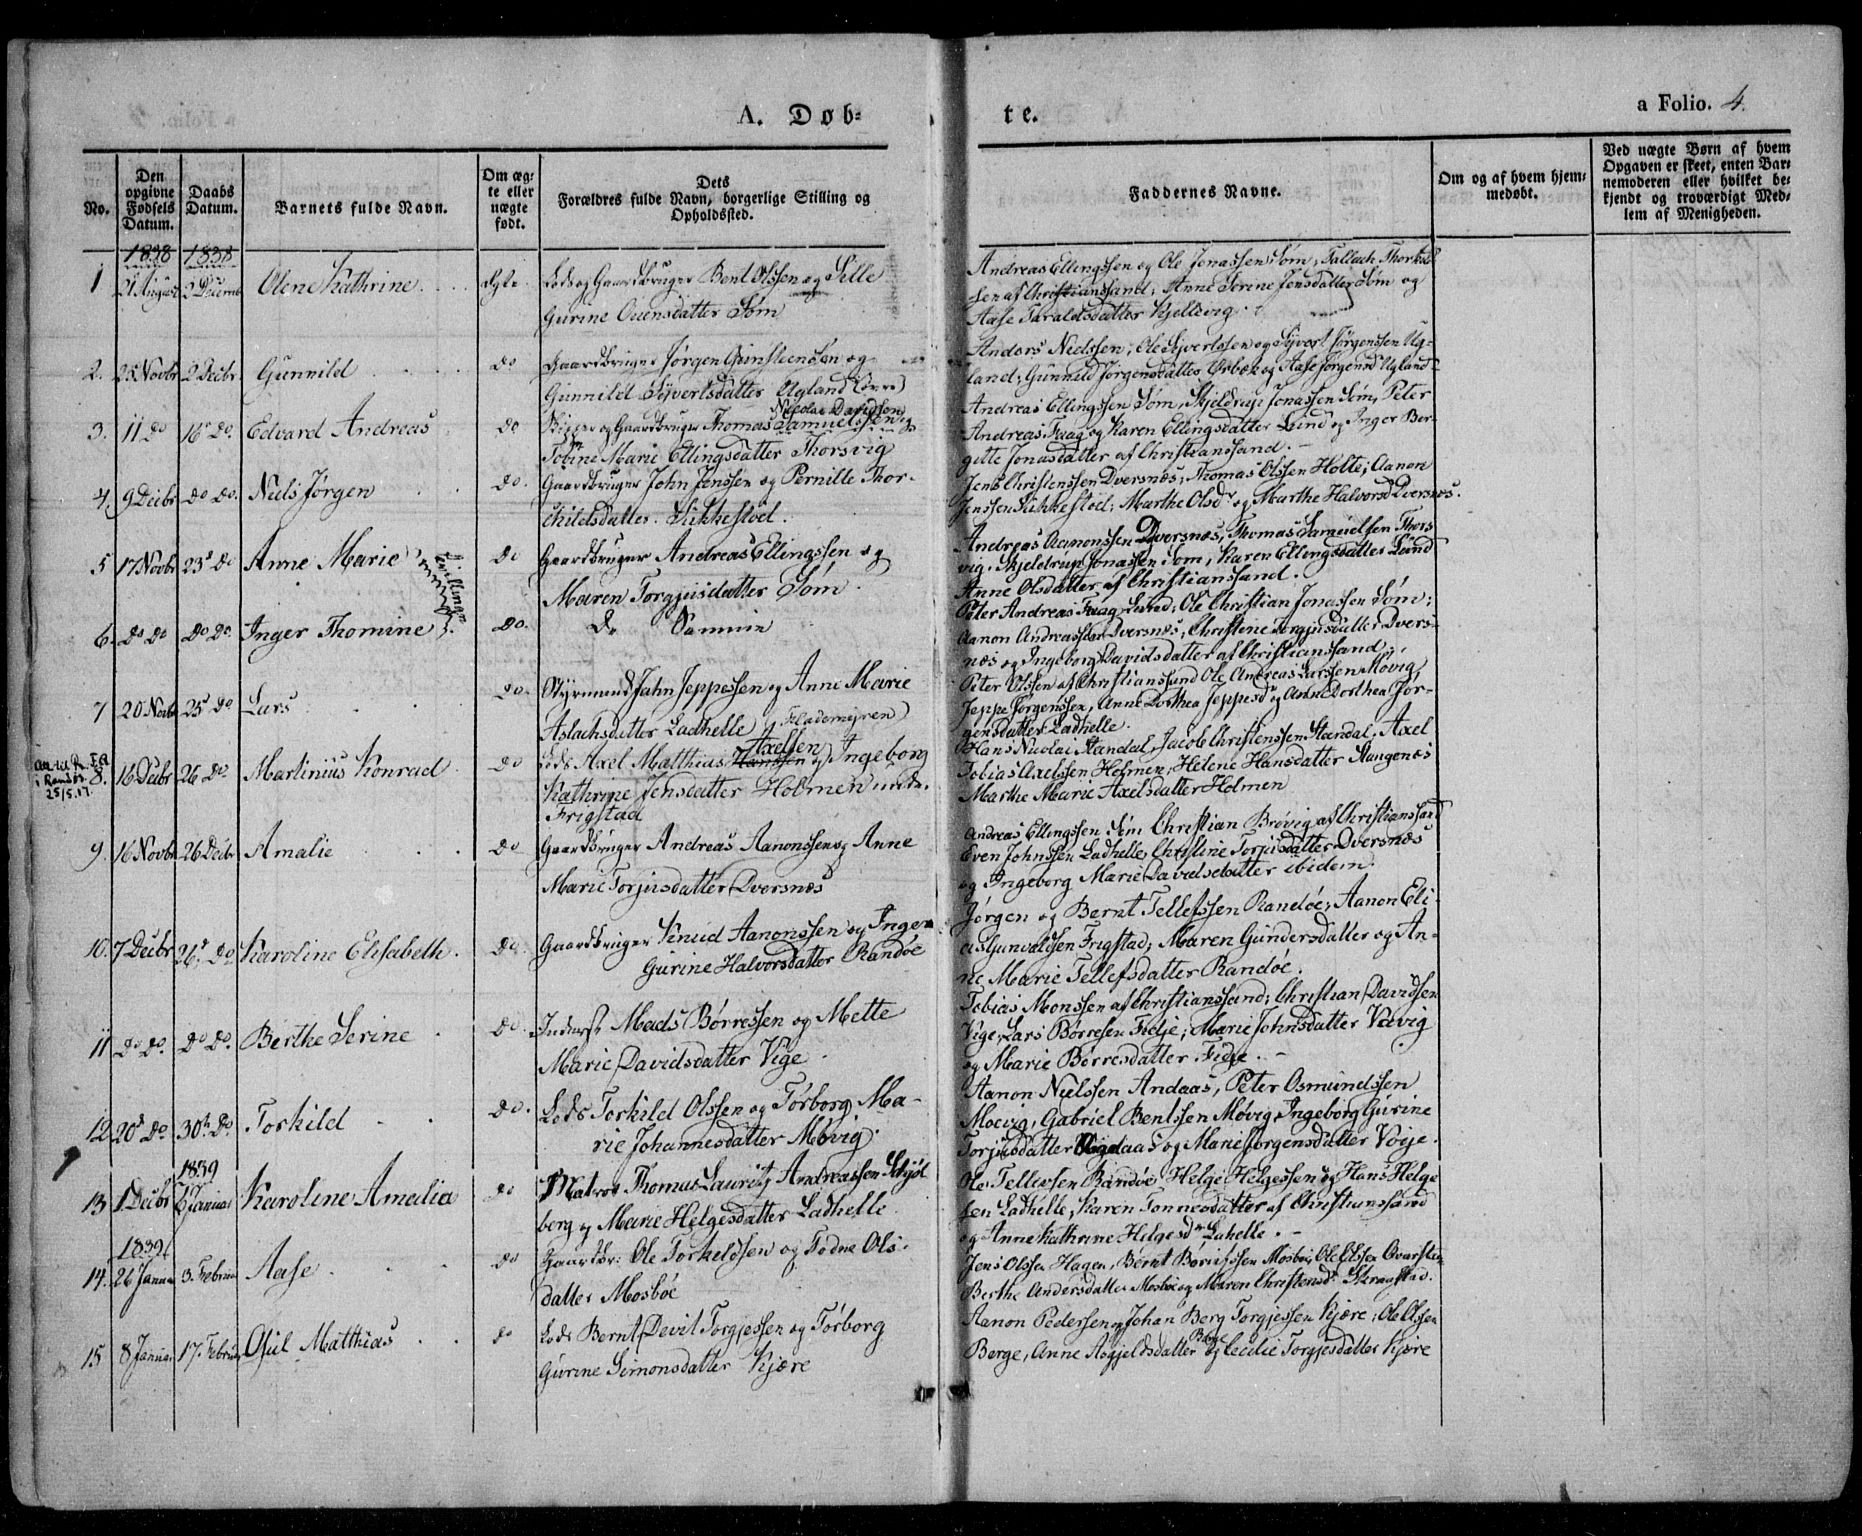 A. Døb-
te.
a Folio. 4.
No.
Den opgivne Fødsels Datum.
Daabs Datum.
Barnets fulde Navn.
Om ægte eller uægte født.
Dets Forældres fulde Navn, borgerlige Stilling og Opholdssted.
Faddernes Navne.
Om og af hvem hjemmedøbt.
Ved uægte Børn af hvem Opgaven er skeet, enten Barnemoderen eller hvilket bekjendt og troværdigt Medlem af Menigheden.
1838 1838
1 21 August 2 Decemb Olene Kathrine Egte Lods og Gaardbruger Bent Olssen og Sille
Gurine Ouensdatter Søm
Andreas Ellingssen og Ole Jonassen Søm, Tallach Thorkild
sen af Christianssand, Anne Serine Jensdatter Søm og
Aase Taraldsdatter Kjellevig
2. 25 Novbr 2 Decbr Gunnild do Gaardbruger Jørgen Gunsteensen og
Gunnild Syvertsdatter Ugland
Anders Nielssen, Ole Syvertssen og Syvert Jørgenssen Ug-
land; Gunnild Jørgensdatter Ørbæk og Aase Jørgensd Ugland
3. 11 do 16 do. Edvard Andreas do og Gaardbruger Thomas Samuelssen og
Nicolai Davidsen
Tobine Marie Ellingsdatter Thorsvig
Andreas Ellingssen Søm, Skjeldrup Jonassen Søm, Peter
Andreas Faag og Karen Ellingsdatter Lund og Inger Ber-
gitte Jonasdatter af Christianssand.
4. 9 Decbr do do. Niels Jørgen do. Gaardbruger John Jenssen og Pernille Thor-
childsdatter Sukkestød.
Jens Christenssen Dversnæs, Thomas Olssen Holte; Aanon
Jenssen Sukkestød; Marthe Olsd og Marthe Halvorsd Dversnæs.
5 17 Novbr 23 do Anne Marie Tvillinger do Gaardbruger Andreas Ellingssen og
Maren Torgjusdatter Søm.
Andreas Aanonssen Dversnæs, Thomas Samuelsen Thors
vig. Skjeldrup Jonassen Søm, Karen Ellingsdatter Lund
Anne Olsdatter af Christianssand.
6. do do do do. Inger Thomine do. Do Samme
Peter Andreas Faag Lund; Ole Christian Jonassen Søm;
Aanon Andreassen Dversnæs, Christine Torgjusdatter Dvers-
næs og Ingeborg Davidsdatter af Christianssand.
7 20 Novbr 25 do Lars do. Styrmand John Jeppessen og Anne Marie
Aslachsdatter Ladhelle (Flademyren)
Peter Olssen af Christianssand Ole Andreas Larssen Møvig
Jeppe Jørgenssen, Anne Dorthea Jeppesd og Anne Dorthea Jør-
gensdatter Ladhelle.
i Randøs. 25/5.17.
8. 16 Decbr 26 do. Martinius Konrad do Lods Axel Matthias Hanssen og Ingeborg
Axelssen
Kathrine Jensdatter Holmen
Frigstad
Hans Nicolai Standal, Jacob Christenssen Standal, Axel
Tobias Axelssen Holmen, Helene Hansdatter Stangenæs
Marthe Marie Axelsdatter Holmen
9 16 Novbr 26 Decbr Amalie do Gaardbruger Andreas Aanonssen og Anne
Marie Torjusdatter Dversnæs
Andreas Ellingssen Søm Christian Brøvig af Christianssand
Even Johnssen Ladhelle, Christine Torjusdatter Dversnæs
og Ingeborg Marie Davidsdatter ibidem
10. 7 Decbr 26. do Karoline Elisabeth do Gaardbruger Knud Aanonssen og Inger
Gurine Halvorsdatter Randøe
Jørgen og Bernt Tellefssen Randøe; Aanon Eli-
as Gunvaldsen Frigstad; Maren Gundersdatter og An-
ne Marie Tellefsdatter Randøe.
11 do do. do do. Berthe Serine do. Inderst Mads Børressen og Mette
Marie Davidsdatter Vige.
Tobias Monssen af Christianssand; Christian Davidsen
Vige, Lars Børresen Fidje; Marie Johnsdatter Vævig
og Marie Børresdatter Fidje.
12 20 do 30 do Torkild do. Lods Torkild Olssen og Tørborg Ma-
rie Johannesdatter Møvig.
Aanon Nielssen Andaas, Peter Osmundssen
Moevig, Gabriel Bentssen Møvig, Ingeborg Gurine
Torjusdatter og Marie Jørgensdatter Voije.
1839
13 1 Decbr 6 Januar Karoline Amalia do Matros Thomas Lauritz Andreassen Schjøl
berg og Marie Helgesdatter Ladhelle
Ole Tellefsen Randøe, Helge Helgessen og Hans Helge
sen Ladhelle, Karen Tonnesdatter af Christianssand
og Anne Kathrine Helgesd Lahelle.
1839
14. 26 Januar 3. Februar Aase do Gaardbr: Ole Torkeldsen og Todne Ols-
datter Mosbøe
Jens Olssen Hagen, Bernt Børufssen Mosbøe, Ole Olssen Qvarsten
Berthe Andersdatter Mosbøe og Maren Christensd Skragstad.
15 8 Januar 17. Februar Ojul Matthias do Lods Bernt Devit Torgjessen og Tørborg
Gurine Simonsdatter Kjære
Aanon Pedersen og Johan Berg Torgjessen Kjære; Ole Olsen
Berge, Anne Asgjeldsdatter Berge og Cecilie Torgjesdatter Kjære